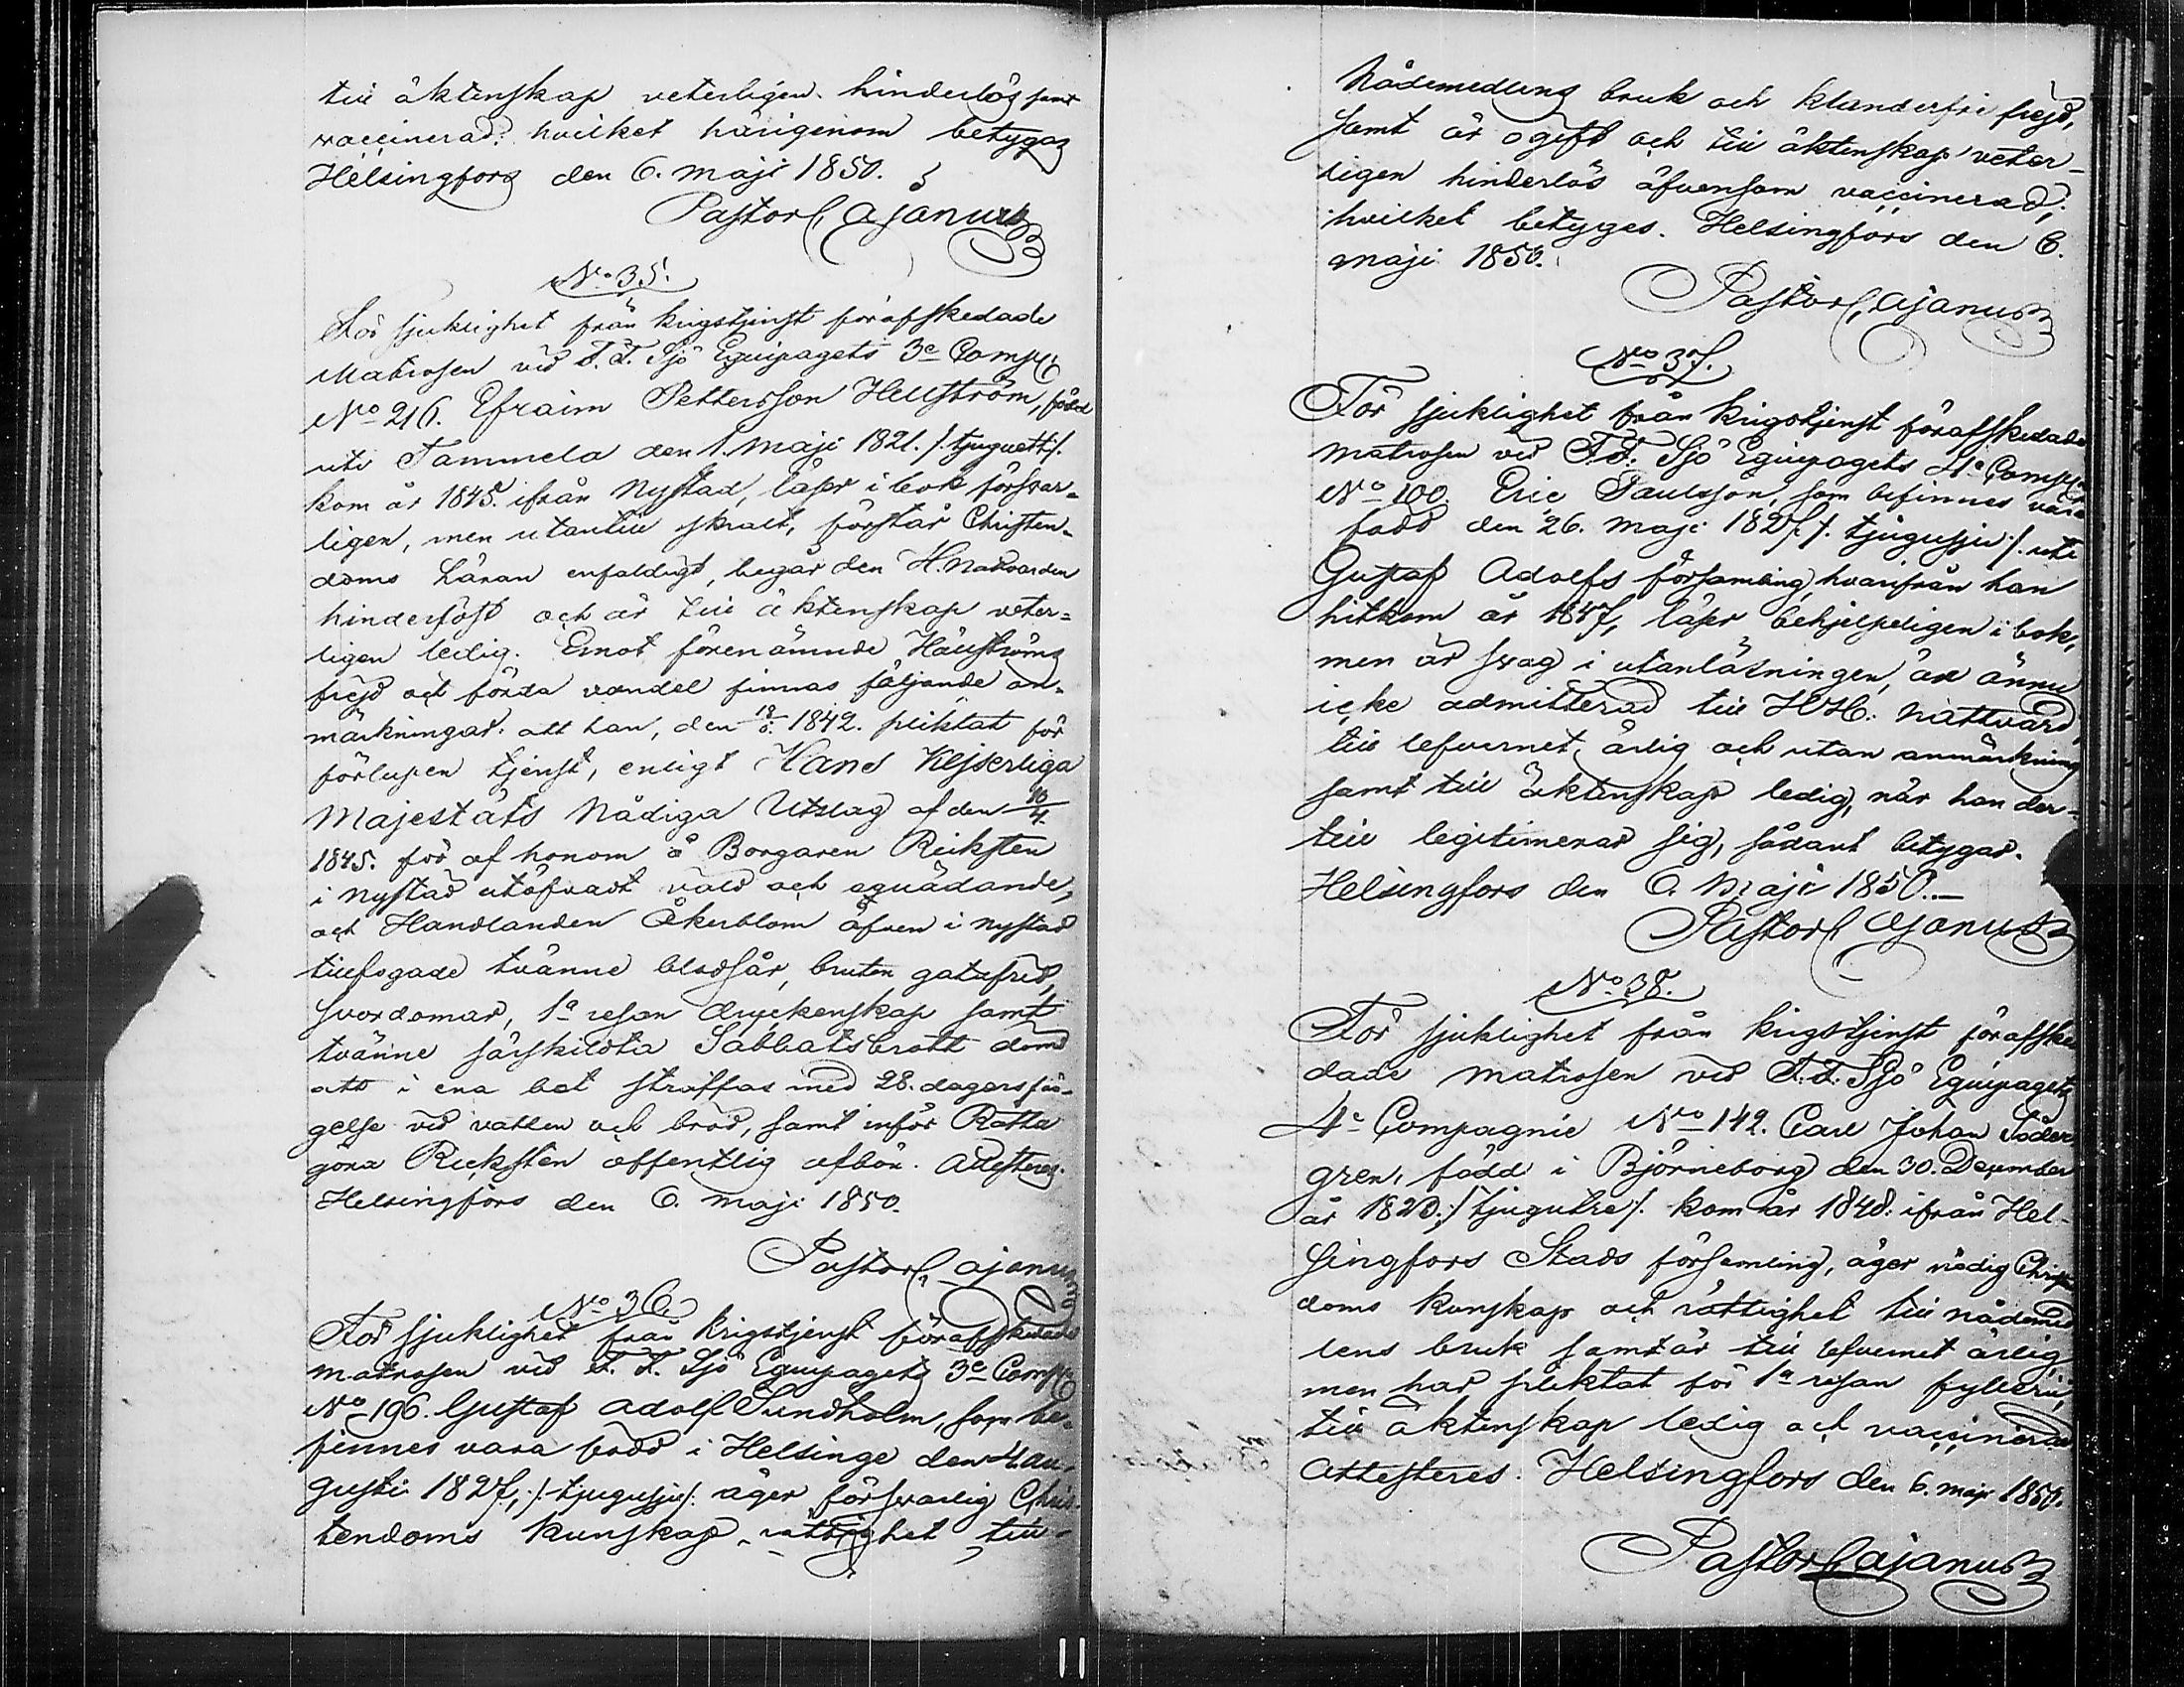 till äktenskap veterligen hinderlös samt
vaccinerad: hvilket härigenom betygas
Helsingfors den 6. Maji 1850.
Pastor Cajanus
No 35.
För sjuklighet från krigstjenst förafskedade
Matrosen vid F. F. Sjö Equipagets 3e Comp:
No 216. Efraim Pettersson Hellström, född
uti Tammela den 1. Maji 1821. /: tjuguett :/.
kom år 1845. ifrån Nystad, läser i bok försvar-
ligen, men utantill skralt, förstår Christen-
doms Läran enfaldigt, begår den H. Nattvarden
hindersföst och är till äktenskap veter-
ligen ledig. Emot förenämnde Hällströms
frejd och förda vandel finnas följande an-
märkningar: att han, den 18/6. 1842. pliktat för
förlupen tjenst, enligt Hans Kejserliga
Majestäts Nådiga Utslag af den 16/4.
1845. för af honom å Borgaren Reiksten
i Nystad utöfvadt våld och oqvädande,
och Handlanden Åkerblom äfven i Nystad
tillfogade tvänne blodsår, bruten gatufrid,
svordomar, 1a resan dryckenskap samt
tvänne särskildta Sabbatsbrott dömd
att i ena bot straffas med 28. dagars fän-
gelse vid vatten och bröd, samt inför Rätta
göra Reicksten offentlig afbön. Attesteras.
Helsingfors den 6. Maji 1850.
Pastor Cajanus
No 36.
För sjuklighet från krigstjenst förafskedade
matrosen vid F. F. Sjö Equipagets 3e Comp:
No 196. Gustaf Adolf Sundholm, som be-
finnes vara född i Helsinge den 4. Au-
gusti 1827, /: tjugusju :/. äger försvarlig Chris-
tendoms kunskap, rättighet till
Nådemedlens bruk och klanderfri frejd,
samt är ogift och till äktenskap veter-
ligen hinderlös äfvensom vaccinerad;
hvilket betyges. Helsingfors den 6.
Maji 1850.
Pastor Cajanus
No 37.
För sjuklighet från krigstjenst förafskedade
matrosen vid F. F. Sjö Equipagets 4e Comp:
No 100. Eric Paulsson, som befinnes vara
född den 26. Maji 1827 /: tjugusju :/. uti
Gustaf Adolfs församling, hvarifrån han
hitkom år 1847, läser behjelpeligen i bok,
men är svag i utanläsningen, är ännu
icke admitterad till H.H. Nattvard,
till lefvernet ärlig och utan anmärkning
samt till äktenskap ledig, när han der-
till legitimerar sig, sådant betygar.
Helsingfors den 6. Maji 1850.
Pastor Cajanus
No 38.
För sjuklighet från krigstjenst förafske
dade matrosen vid F. F. Sjö Equipagets
4e Compagnie No 142. Carl Johan Söder
gren, född i Björneborg den 30. December
år 1823. /: tjugutre :/. kom år 1848. ifrån Hel-
singfors Stads församling, äger nödig Christen
doms kunskap och rättighet till nådemed
lens bruk samt är till lefvernet ärlig,
men har pliktat för 1a resan fylleri,
till äktenskap ledig och vaccinerad
attesteres. Helsingfors den 6. maji 1850.
Pastor Cajanus
11